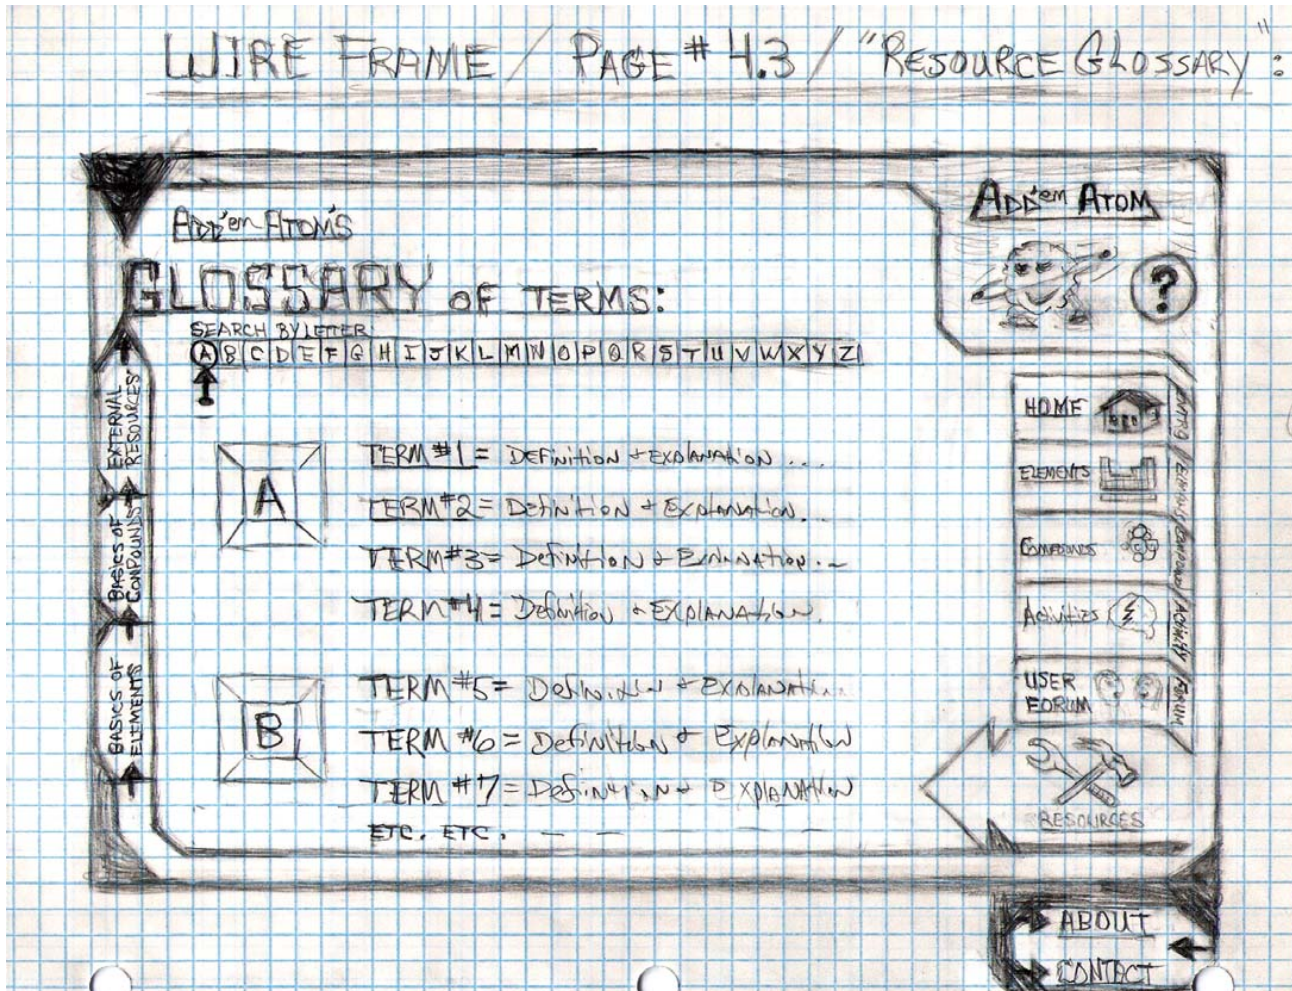 WIRE FRAME / PAGE # 4.3 / "RESOURCE GLOSSARY":
ADD'em ATOM'S
GLOSSARY OF TERMS:
SEARCH BY LETTER:
A B C D E F G H I J K L M N O P Q R S T U V W X Y Z
A
TERM #1 = DEFINITION + EXPLANATION ...
TERM #2 = Definition + Explanation...
TERM #3 = Definition +
TERM #4 = Definition + EXPLANATION.
B
TERM #5 = Definition + EXPLANATION...
TERM #6 = Definition + Explanation
TERM #7 = Definition + EXPLANATION
ETC. ETC. — — — — —
EXTERNAL
RESOURCES
BASICS OF
COMPOUNDS
BASICS OF
ELEMENTS
ADD'em ATOM
?
HOME
ELEMENTS
COMPOUNDS
Activities
USER
FORUM
RESOURCES
ACTIVITY
FORUM
ABOUT
CONTACT